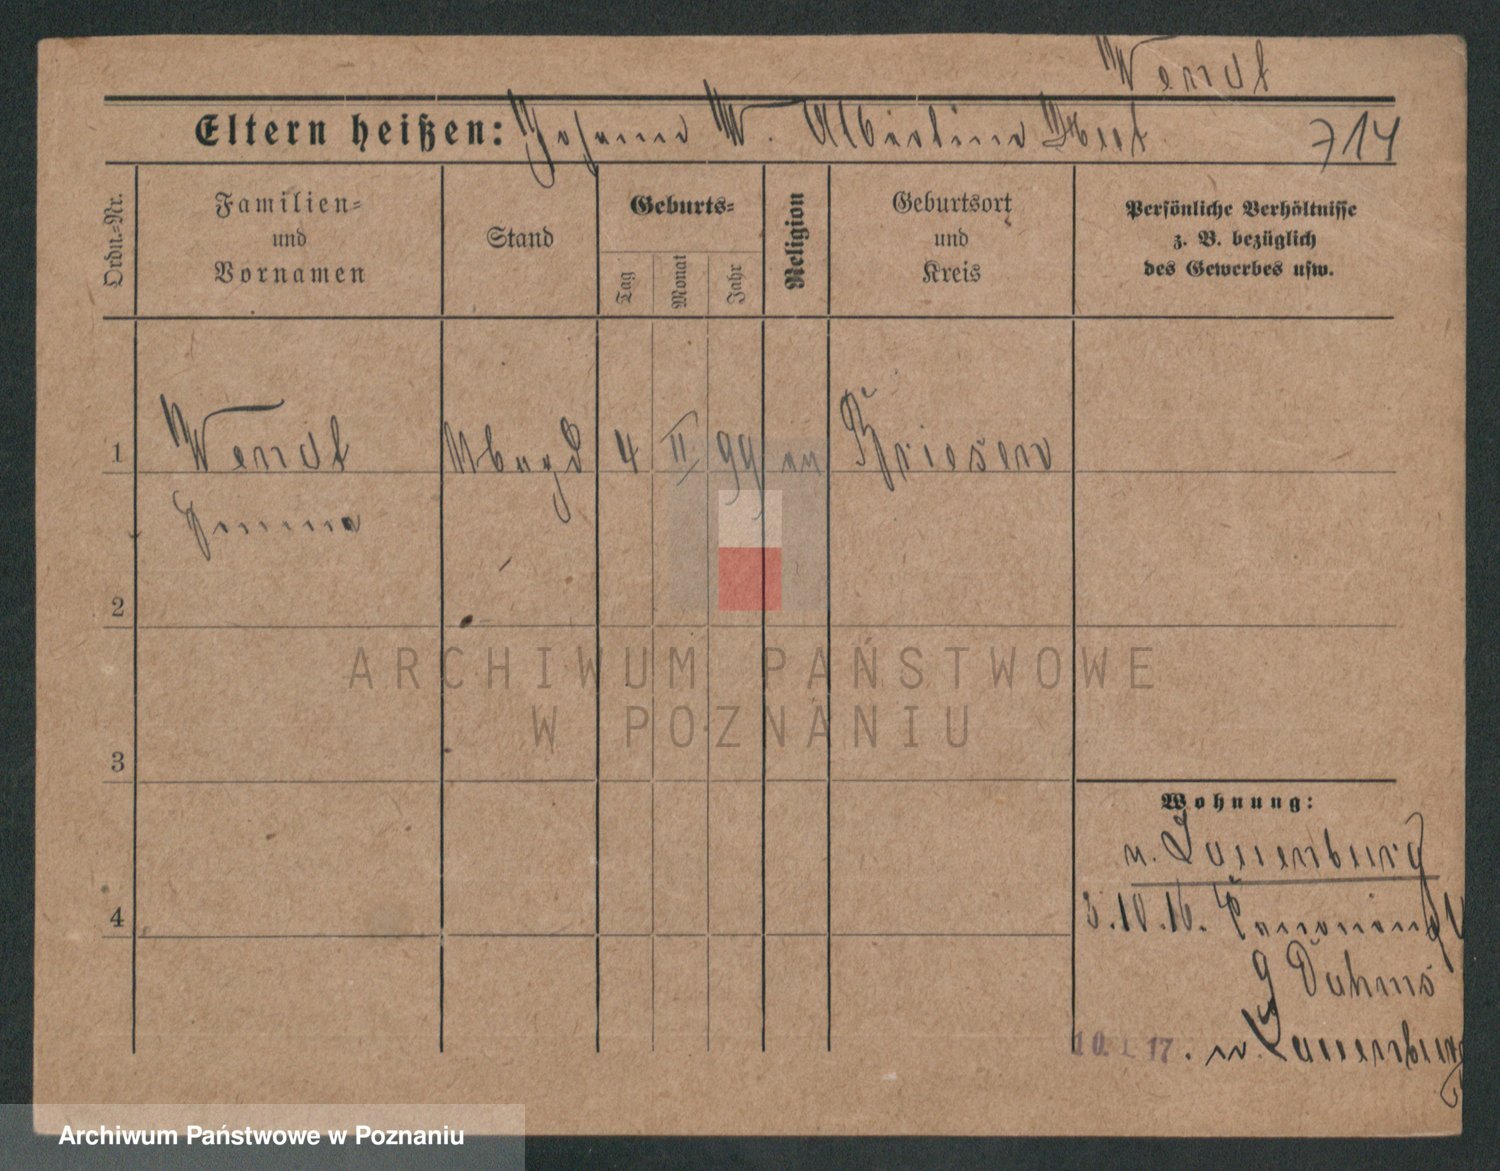 Wendt
Eltern heißen: Johann W. Albertine 714
Ordn.-Nr.
Familien- und Vornamen
Stand
Geburts-
Tag
Monat
Jahr
Religion
Geburtsort und Kreis
Persönliche Verhältnisse
z. B. bezüglich
des Gewerbes usw.
1 Wendt Mbagd 4 II. 99 ev Briesen
Emma
2
ARCHIWUM PAŃSTWOWE
W POZNANIU
3
Wohnung:
n. Lauenburg
4
3.10.16.
9 Dahms
10. 1. 17. n. Lauenburg
Archiwum Państwowe w Poznaniu